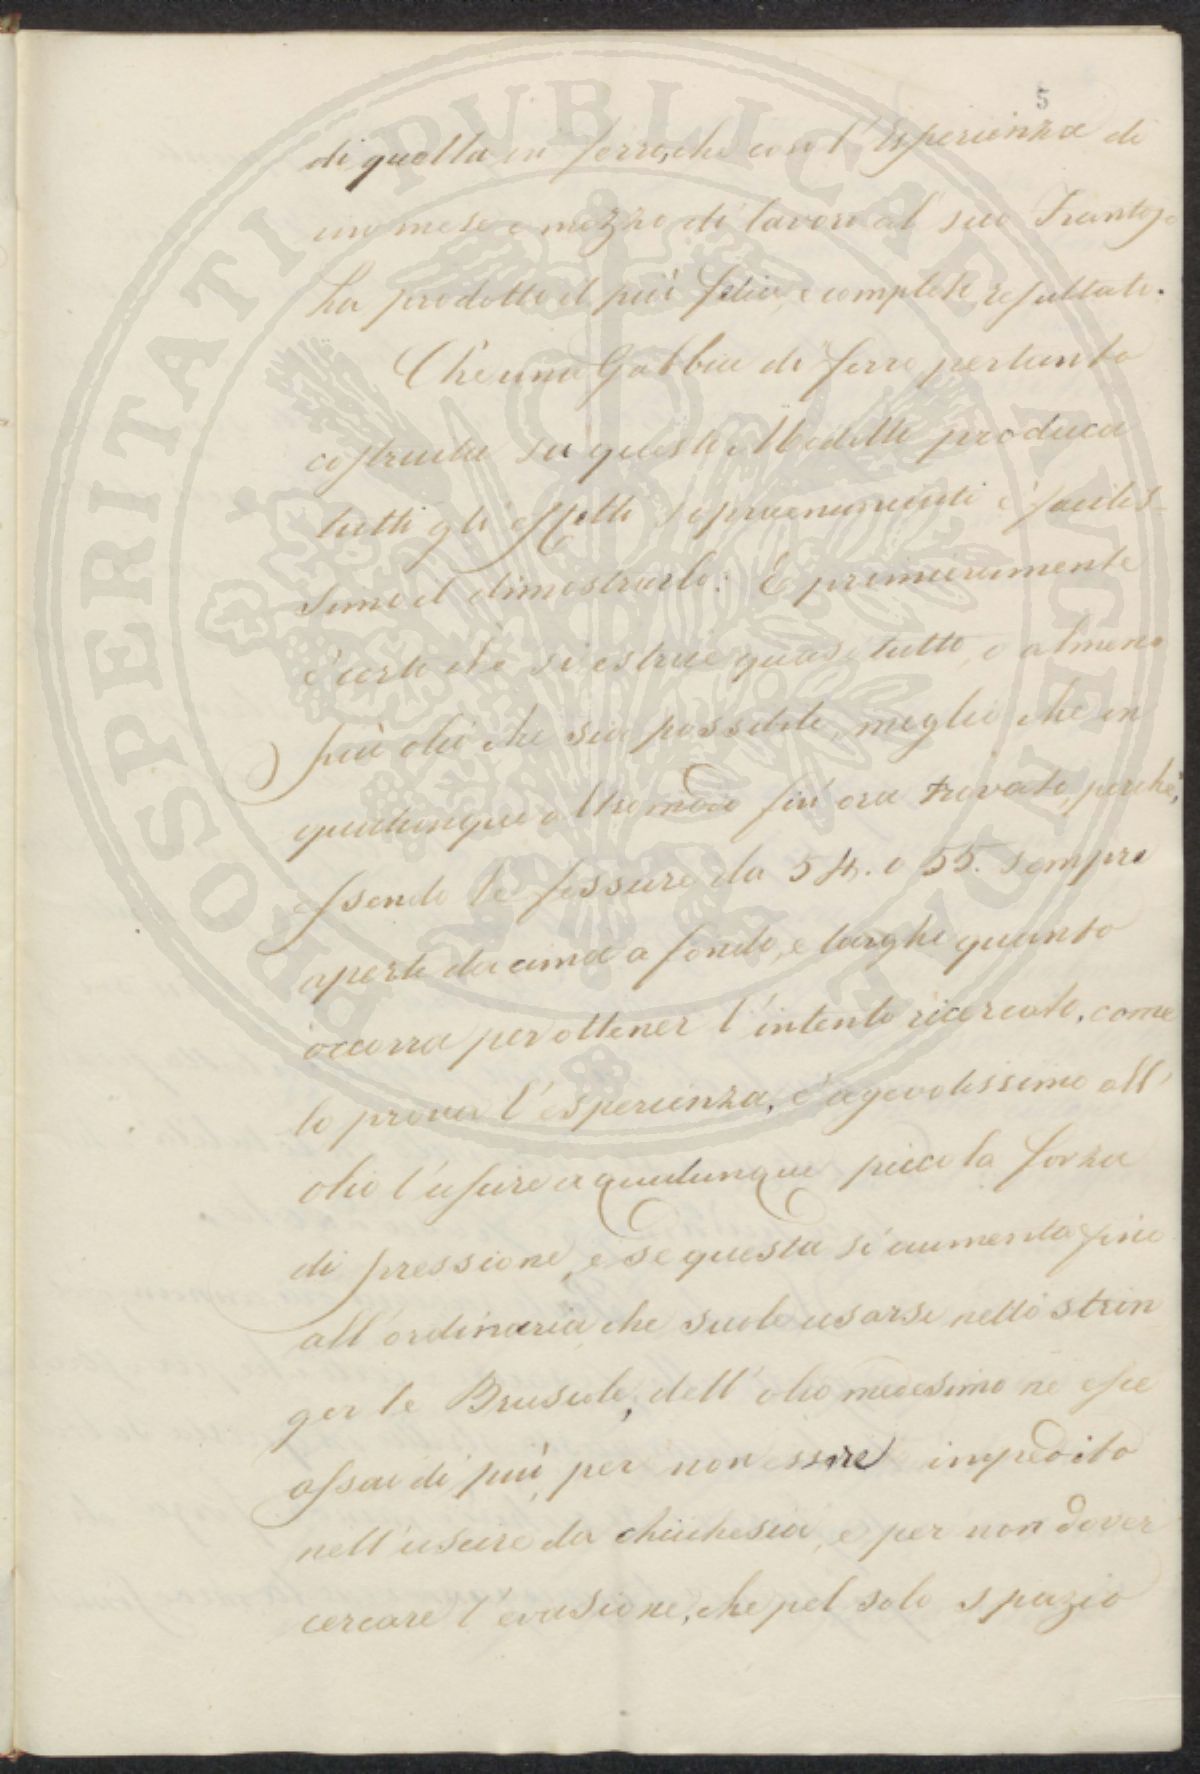 5
di quella in ferro, che con l'Esperienza di
un mese e mezzo di lavoro al suo Frantojo
ha prodotto il più felice, e completo resultato.
Che una Gabbia di ferro pertanto
costruita su questo Modello produca
tutti gli effetti sopraenunciati è facilis-
simo il dimostrarlo: E primieramente
è certo che si estrae quasi tutto, o almeno
più olio che sia possibile, meglio che in
qualunque altro modo fin'ora trovato, perchè,
essendo le fessure da 54. o 55. sempre
aperte da cima a fondo, e larghe quanto
occorra per ottener l'intento ricercato, come
lo prova l'esperienza, è agevolissimo all'
olio l'uscire a qualunque piccola forza
di pressione, e se questa si aumenta fino
all'ordinaria, che suole usarsi nello strin
ger le Bruscole, dell'olio medesimo ne esce
assai di più, per non essere impedito
nell'uscire da chichesia, e per non dover
cercare l'evasione, che pel solo spazio
PROSPERITATI PUBLICAE AUGENDAE